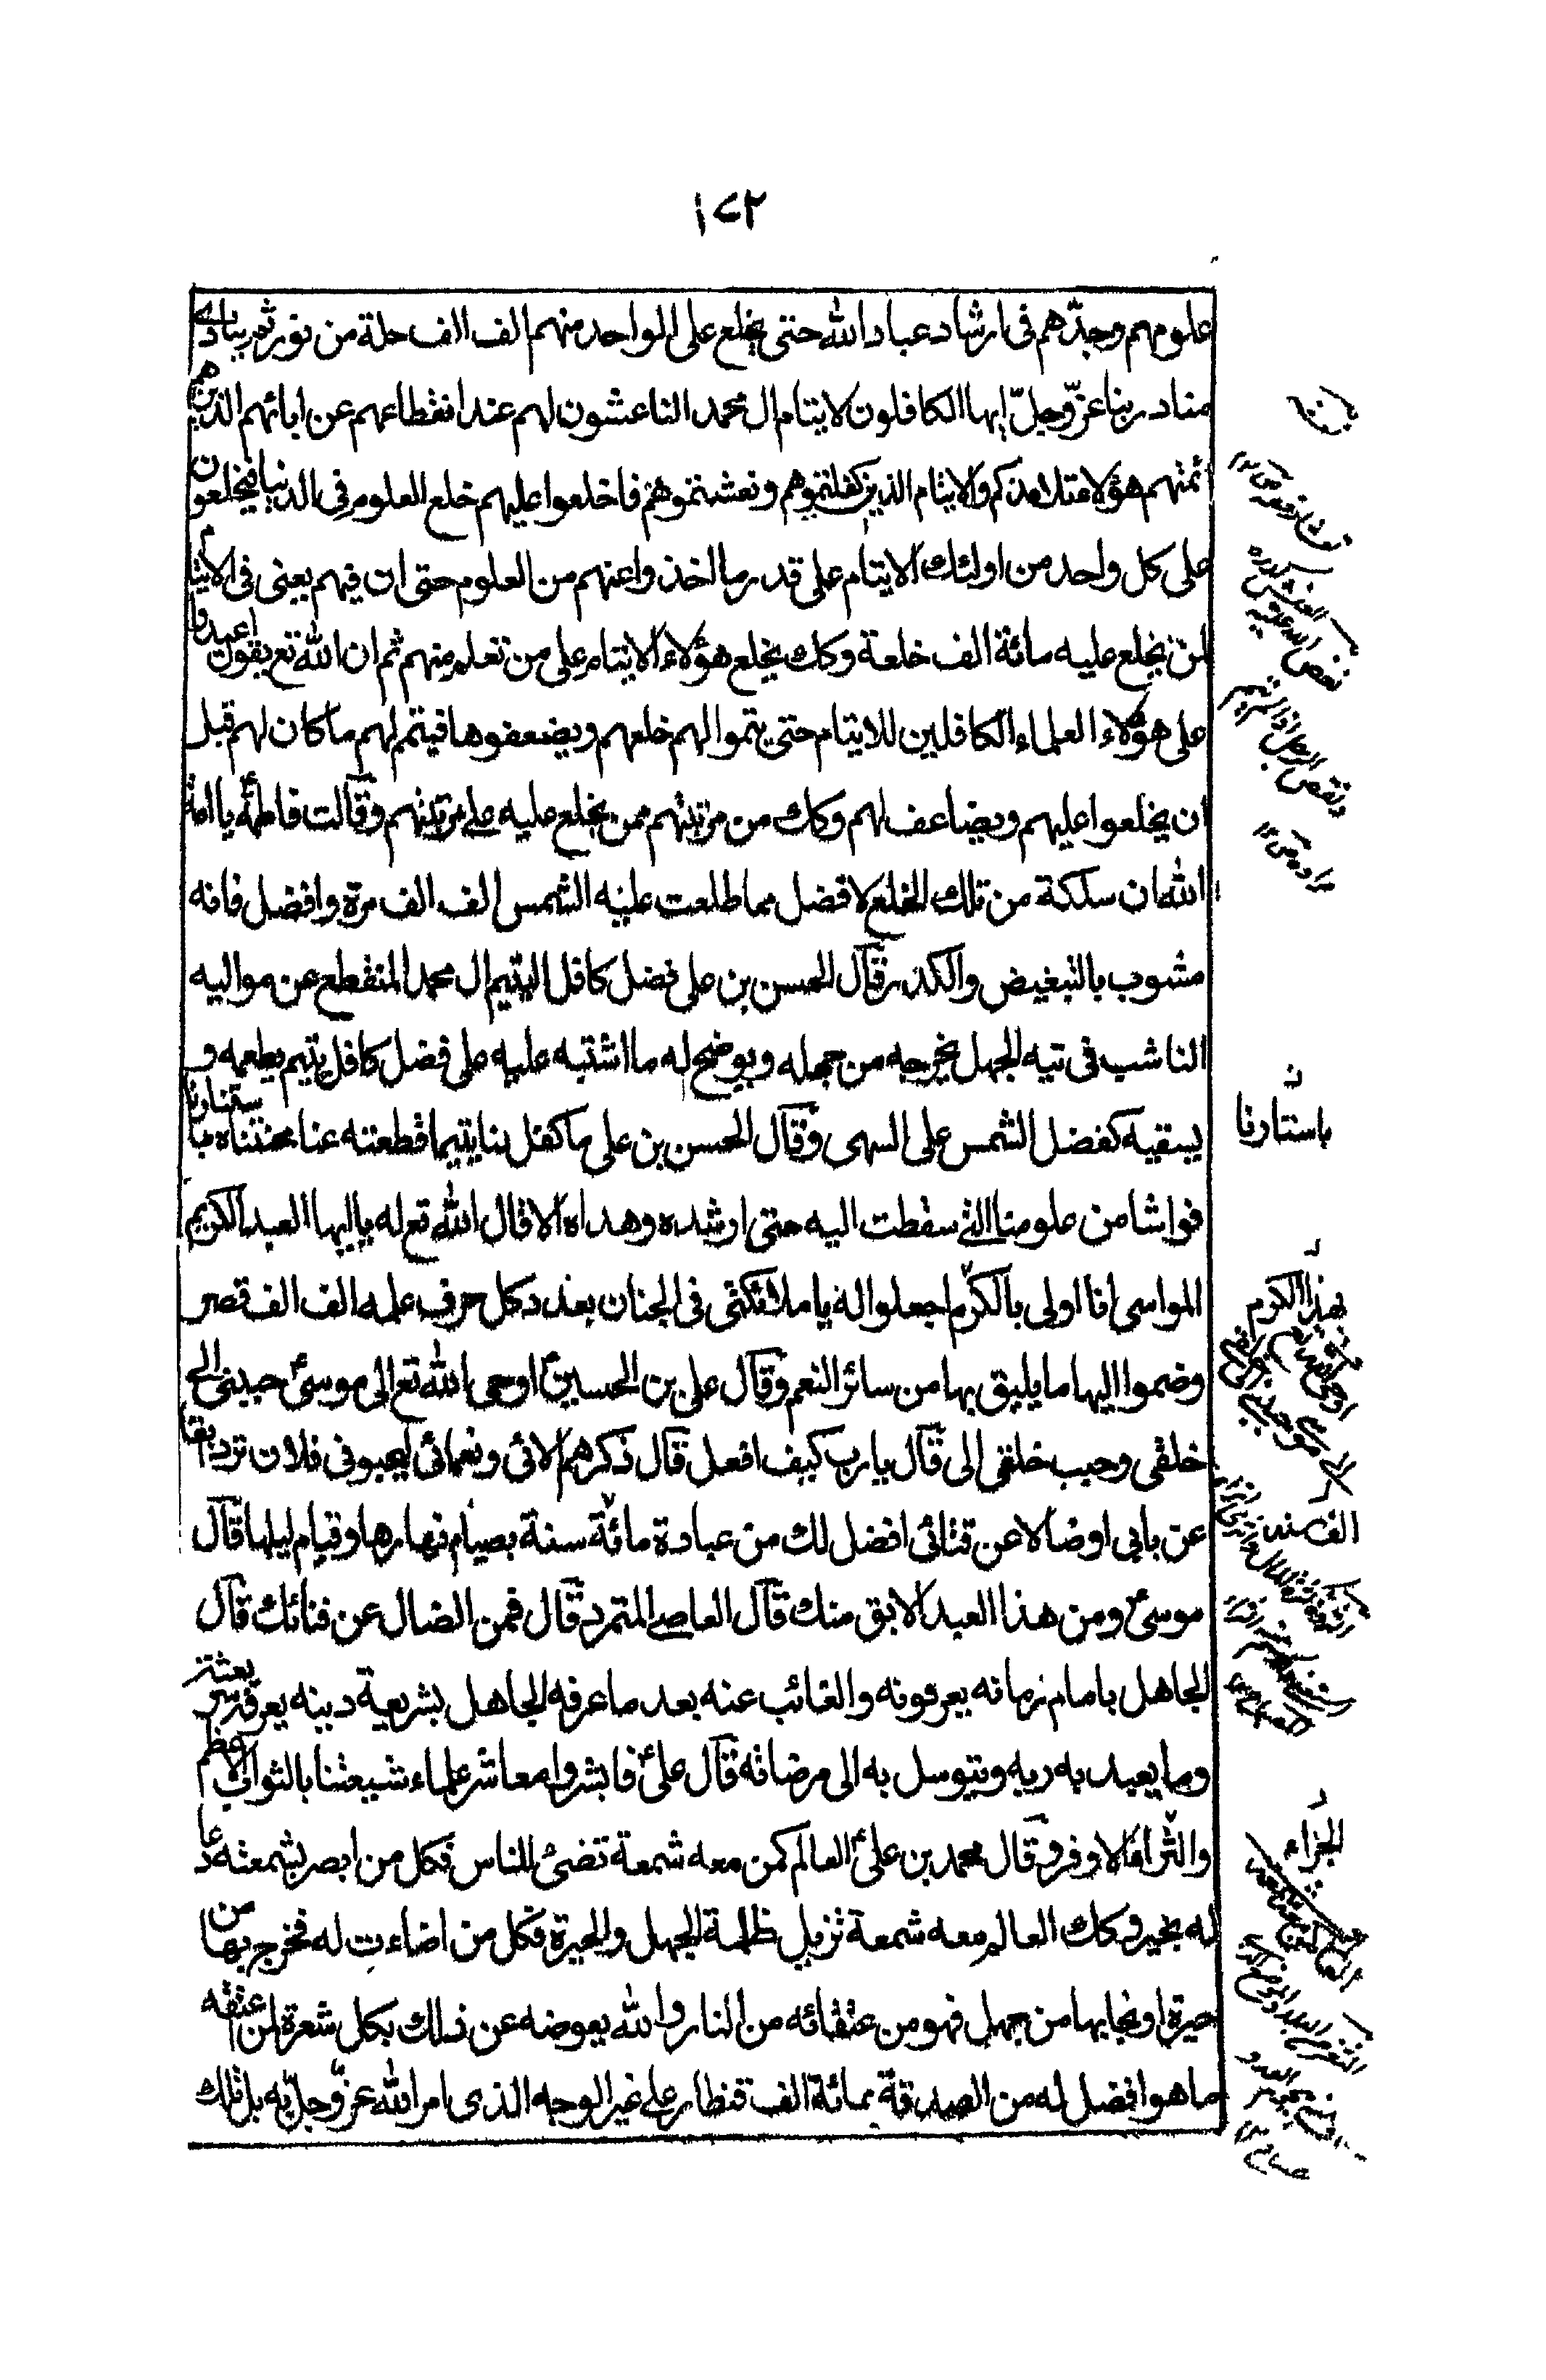 ١٧٢
علومهم وجدّهم فى ارشاد عباد الله حتى يخلع على الواحد منهم الف الف حلة من نور ثم ينادى
مناد ربنا عزّ وجلّ ايها الكافلون لايتام ال محمد الناعشون لهم عند انقطاعهم عن ابائهم الذين هم
ائمتهم هؤلاء تلامذتكم والايتام الذين كفلتموهم ونعشتموهم فاخلعوا عليهم خلع العلوم فى الدنيا فيخلعون
على كل واحد من اولئك الايتام على قدر ما اخذوا عنهم من العلوم حتى ان فيهم يعنى فى الايتام
لمن يخلع عليه مائة الف خلعة وكك يخلع هؤلاء الايتام على من تعلم منهم ثم ان الله تع يقول اعيدوا
على هؤلاء العلماء الكافلين للايتام حتى يتموا لهم خلعهم ويضعفوها فيتم لهم ما كان لهم قبل
ان يخلعوا عليهم ويضاعف لهم وكك من مرتبتهم ممن يخلع عليه على مرتبتهم وقالت فاطمة يا امة
الله ان سلكة من تلك الخلع لافضل مما طلعت عليه الشمس الف الف مرة وافضل فانه
مشوب بالتبغيض والكدر قال الحسن بن على فضل كافل اليتيم ال محمد المنقطع عن مواليه
الناشب فى تيه الجهل يخرجه من جهله ويوضح له ما اشتبه عليه على فضل كافل يتيم يطعمه و
يسقيه كفضل الشمس على السهى وقال الحسن بن على ما كفل بنا يتيما قطعته عنا محنتنا باستتارنا
فواشا من علومنا التى سقطت اليه حتى ارشده وهداه الا قال الله تع له يا ايها العبد الكريم
المواسى انا اولى بالكرم اجعلوا له يا ملائكتى فى الجنان بعدد كل حرف علمه الف الف قصر
وضموا اليها ما يليق بها من سائر النعم وقال على بن الحسين اوحى الله تع الى موسى حببنى الى
خلقى وحبب خلقى الى قال يا رب كيف افعل قال ذكرهم الائى ونعمائى ليحبونى فلان ترد ابقا
عن بابى او ضالا عن فنائى افضل لك من عبادة مائة سنة بصيام نهارها وقيام ليلها قال
موسى ومن هذا العبد الابق منك قال العاصى المتمرد قال فمن الضال عن فنائك قال
الجاهل بامام زمانه يعرفونه والغائب عنه بعد ما عرفه الجاهل بشريعة دينه يعرفه شريعته
وما يعبد به ربه ويتوسل به الى مرضاته قال على فابشروا معاشر علماء شيعتنا بالثواب الاعظم
والثراء الاوفر وقال محمد بن على العالم كمن معه شمعة تضئ للناس فكل من ابصر بشمعته دعا
له بخير وكك العالم معه شمعة تزيل ظلمة الجهل والحيرة فكل من اضاءت له فخرج بها من
حيرة او نجا بها من جهل فهو من عتقائه من النار والله يعوضه عن ذلك بكل شعرة لمن اعتقه
ما هو افضل له من الصدقة بمائة الف قنطار على غير الوجه الذى امر الله عز وجل به بل تلك
باستتارنا
بهذا الكرم
الف سنة
الجزاء